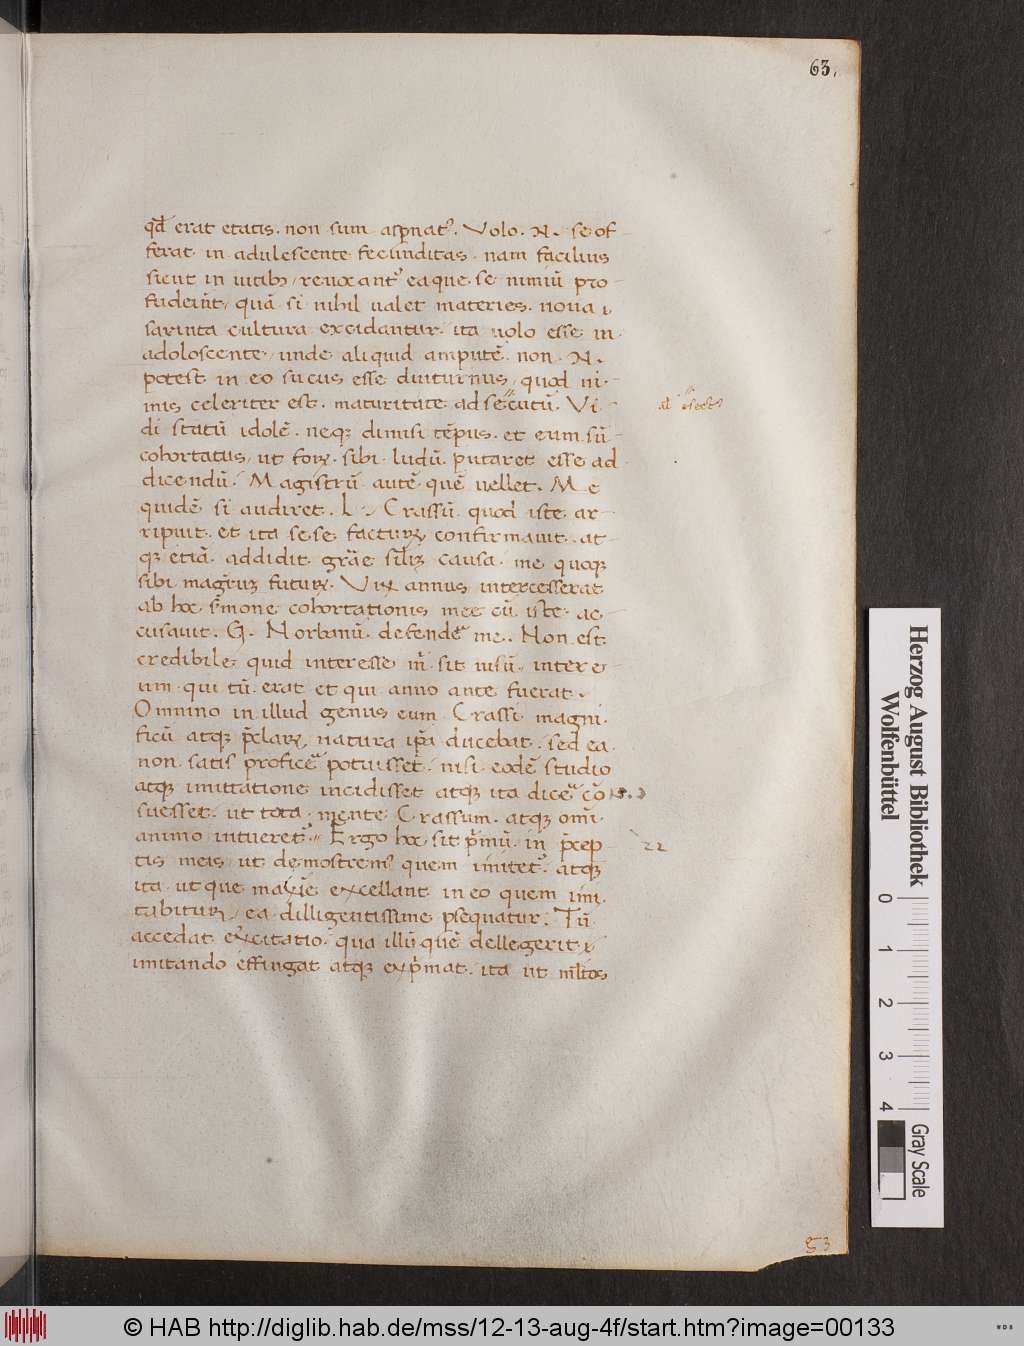 63.
qđ erat etatis. non sum asp̱nat᾽. Volo. N. se of
ferat in adulescente fecunditas. nam facilius
sicut in uitib; reuocant᾽ eaque se nimiū pro
fuder̄t, quā si nihil ualet materies. noua
sarinta cultura excidantur. ita uolo esse in
adoloscente, unde aliquid amputē. non .N.
potest in eo sucus esse diuturnus, quod ni
mis celeriter est. maturitate adsecutū. Vi
di statū idolē. neq; dimisi tēpus. et eum sū
cohortatus, ut foꝝ. sibi ludū. putaret esse ad
dicendū. Magistrū autē quē uellet. Me
quidē si audiret. L. Crassū. quod iste ar
ripuit. et ita sese facturꝝ confirmauit. at
q; etiā. addidit grāe sil̄iz causa. me quoq;
sibi magr̄uz futurꝝ. Vix annus intercesserat
ab hoc s̄mone cohortationis mee cū iste. ac
cusauit. G. Norbanū. defendēa me. Non est
credibile, quid interesse m̄ sit uisū. inter e
um qui tū erat et qui anno ante fuerat.
Omnino in illud genus eum Crassi magni
ficū atq; p̄claꝝ, natura ip̄a ducebat. sed ea
non satis proficēa potuisset. nisi eodē studio
atq; imitatione incidisset atq; ita dicēa cō
suesset. ut tota mente Crassum. atq; om̄i
animo intueret᾽. Ergo hoc sit p̄mū. in p̄cep
tis meis ut demostrem᾽ quem imitet᾽. atq;
ita ut que maxīe excellant in eo quem imi
tabituꝝ, ea dilligentissime p̱sequatur. Tū
accedat exercitatio. qua illū quē dellegerit
imitando effingat atq; exp̄mat. ita ut ml̄tos
53
Herzog August Bibliothek
Wolfenbüttel
0 1 2 3 4
Gray Scale
© HAB http://diglib.hab.de/mss/12-13-aug-4f/start.htm?image=00133